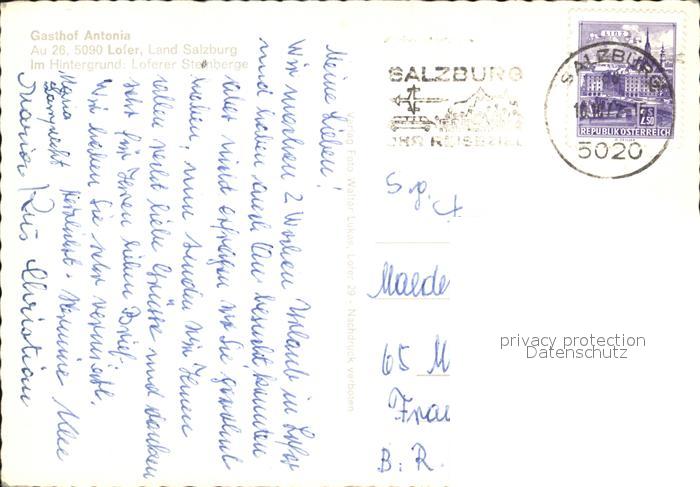 Gasthof Antonia
Au 26, 5090 Lofer, Land Salzburg
Im Hintergrund: Loferer Steinberge
Meine Lieben!
Wir machen 2 Wochen Urlaub in Lofer
und haben auch Um besucht, konnten
aber nicht erfragen wo Sie gewohnt
haben, nun senden wir Ihnen
allen recht liebe Grüsse und danken
sehr für Ihren lieben Brief.
Wir haben Sie sehr vermisst.
Maria herzlichst. Hermine
Maria Christian
Foto Walter Lukas, Lofer 29 - Nachdruck verboten
SALZBURG
IHR REISEZIEL
LINZ
2.50
REPUBLIK ÖSTERREICH
SALZBURG
5020
Maede
65 M
Frau
B. R.
privacy protection
Datenschutz